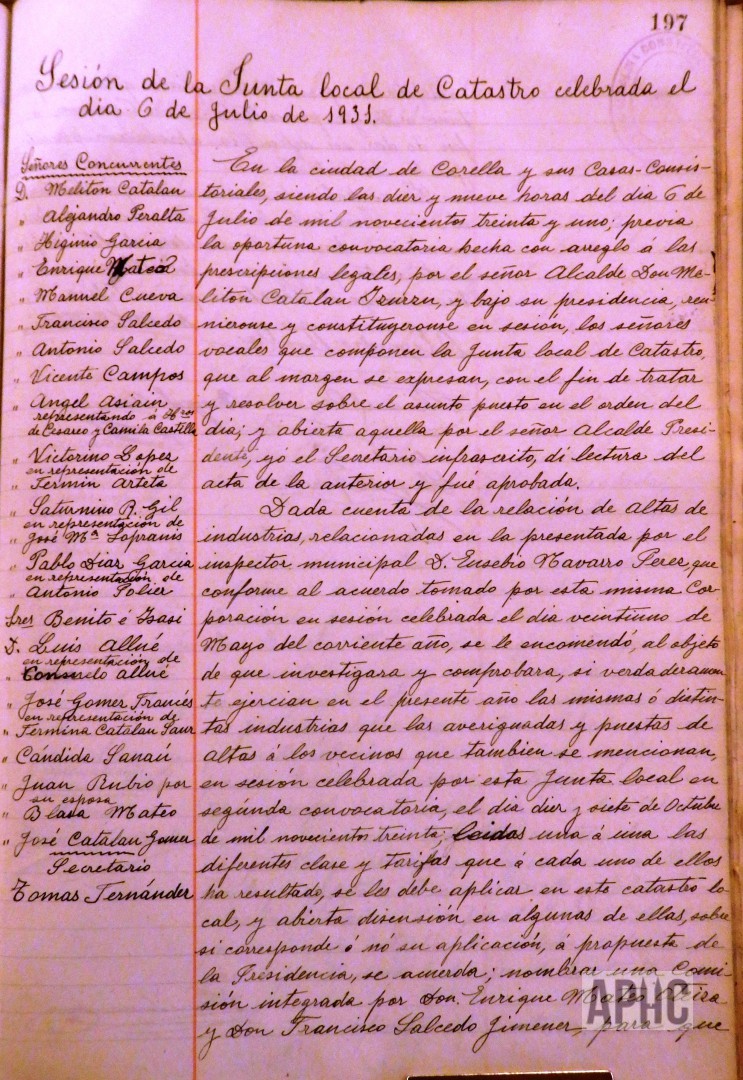 197
Sesión de la Junta local de Catastro celebrada el
dia 6 de Julio de 1931.
Señores Concurrentes
D. Meliton Catalan
" Alejandro Peralta
" Higinio Garcia
" Enrique Mateo
" Manuel Cueva
" Francisco Salcedo
" Antonio Salcedo
" Vicente Campos
" Angel Asiain
representando á Hros
de Cesareo y Camila Castilla
" Victorino Lopez
en representación de
" Fermin Arteta
" Saturnino R. Gil
en representación de
" José Mª Sopranis
" Pablo Diaz Garcia
en representación de
" Antonio Polier
Sres Benito é Isasi
D. Luis Allué
en representación de
" Consuelo Allué
" José Gomez Francés
en representación de
" Fermina Catalan Sanz
" Cándida Sanaú
" Juan Rubio por
su esposa
" Blasa Mateo
" José Catalan Gomez
Secretario
Tomas Fernández
En la ciudad de Corella y sus Casas-Consis-
toriales, siendo las diez y nueve horas del dia 6 de
Julio de mil novecientos treinta y uno; previa
la oportuna convocatoria hecha con arreglo á las
prescripciones legales, por el señor Alcalde Don Me-
liton Catalan Izurzu, y bajo su presidencia, reu-
nieronse y constituyeronse en sesión, los señores
vocales que componen la Junta local de Catastro,
que al margen se expresan, con el fin de tratar
y resolver sobre el asunto puesto en el orden del
dia; y abierta aquella por el señor Alcalde Presi-
dente, yó el Secretario infrascrito, dí lectura del
acta de la anterior y fué aprobada.
Dada cuenta de la relación de altas de
industrias, relacionadas en la presentada por el
inspector municipal D. Eusebio Navarro Perez, que
conforme al acuerdo tomado por esta misma Cor-
poración en sesión celebrada el dia veintiuno de
Mayo del corriente año, se le encomendó, al objeto
de que investigara y comprobara, si verdaderamen
te ejercian en el presente año las mismas ó distin-
tas industrias que las averiguadas y puestas de
altas á los vecinos que tambien se mencionan,
en sesión celebrada por esta Junta local en
segúnda convocatoria, el dia diez y siete de Octubre
de mil novecientos treinta; leidas una á una las
diferentes clase y tarifas que á cada uno de ellos
ha resultado, se les debe aplicar en este catastro lo-
cal, y abierta discusión en algunas de ellas, sobre
si corresponde ó nó su aplicación, á propuesta de
la Presidencia, se acuerda; nombrar una Comi
sión integrada por Don. Enrique Mateo
y Don Francisco Salcedo Jimenez, para que
APHC